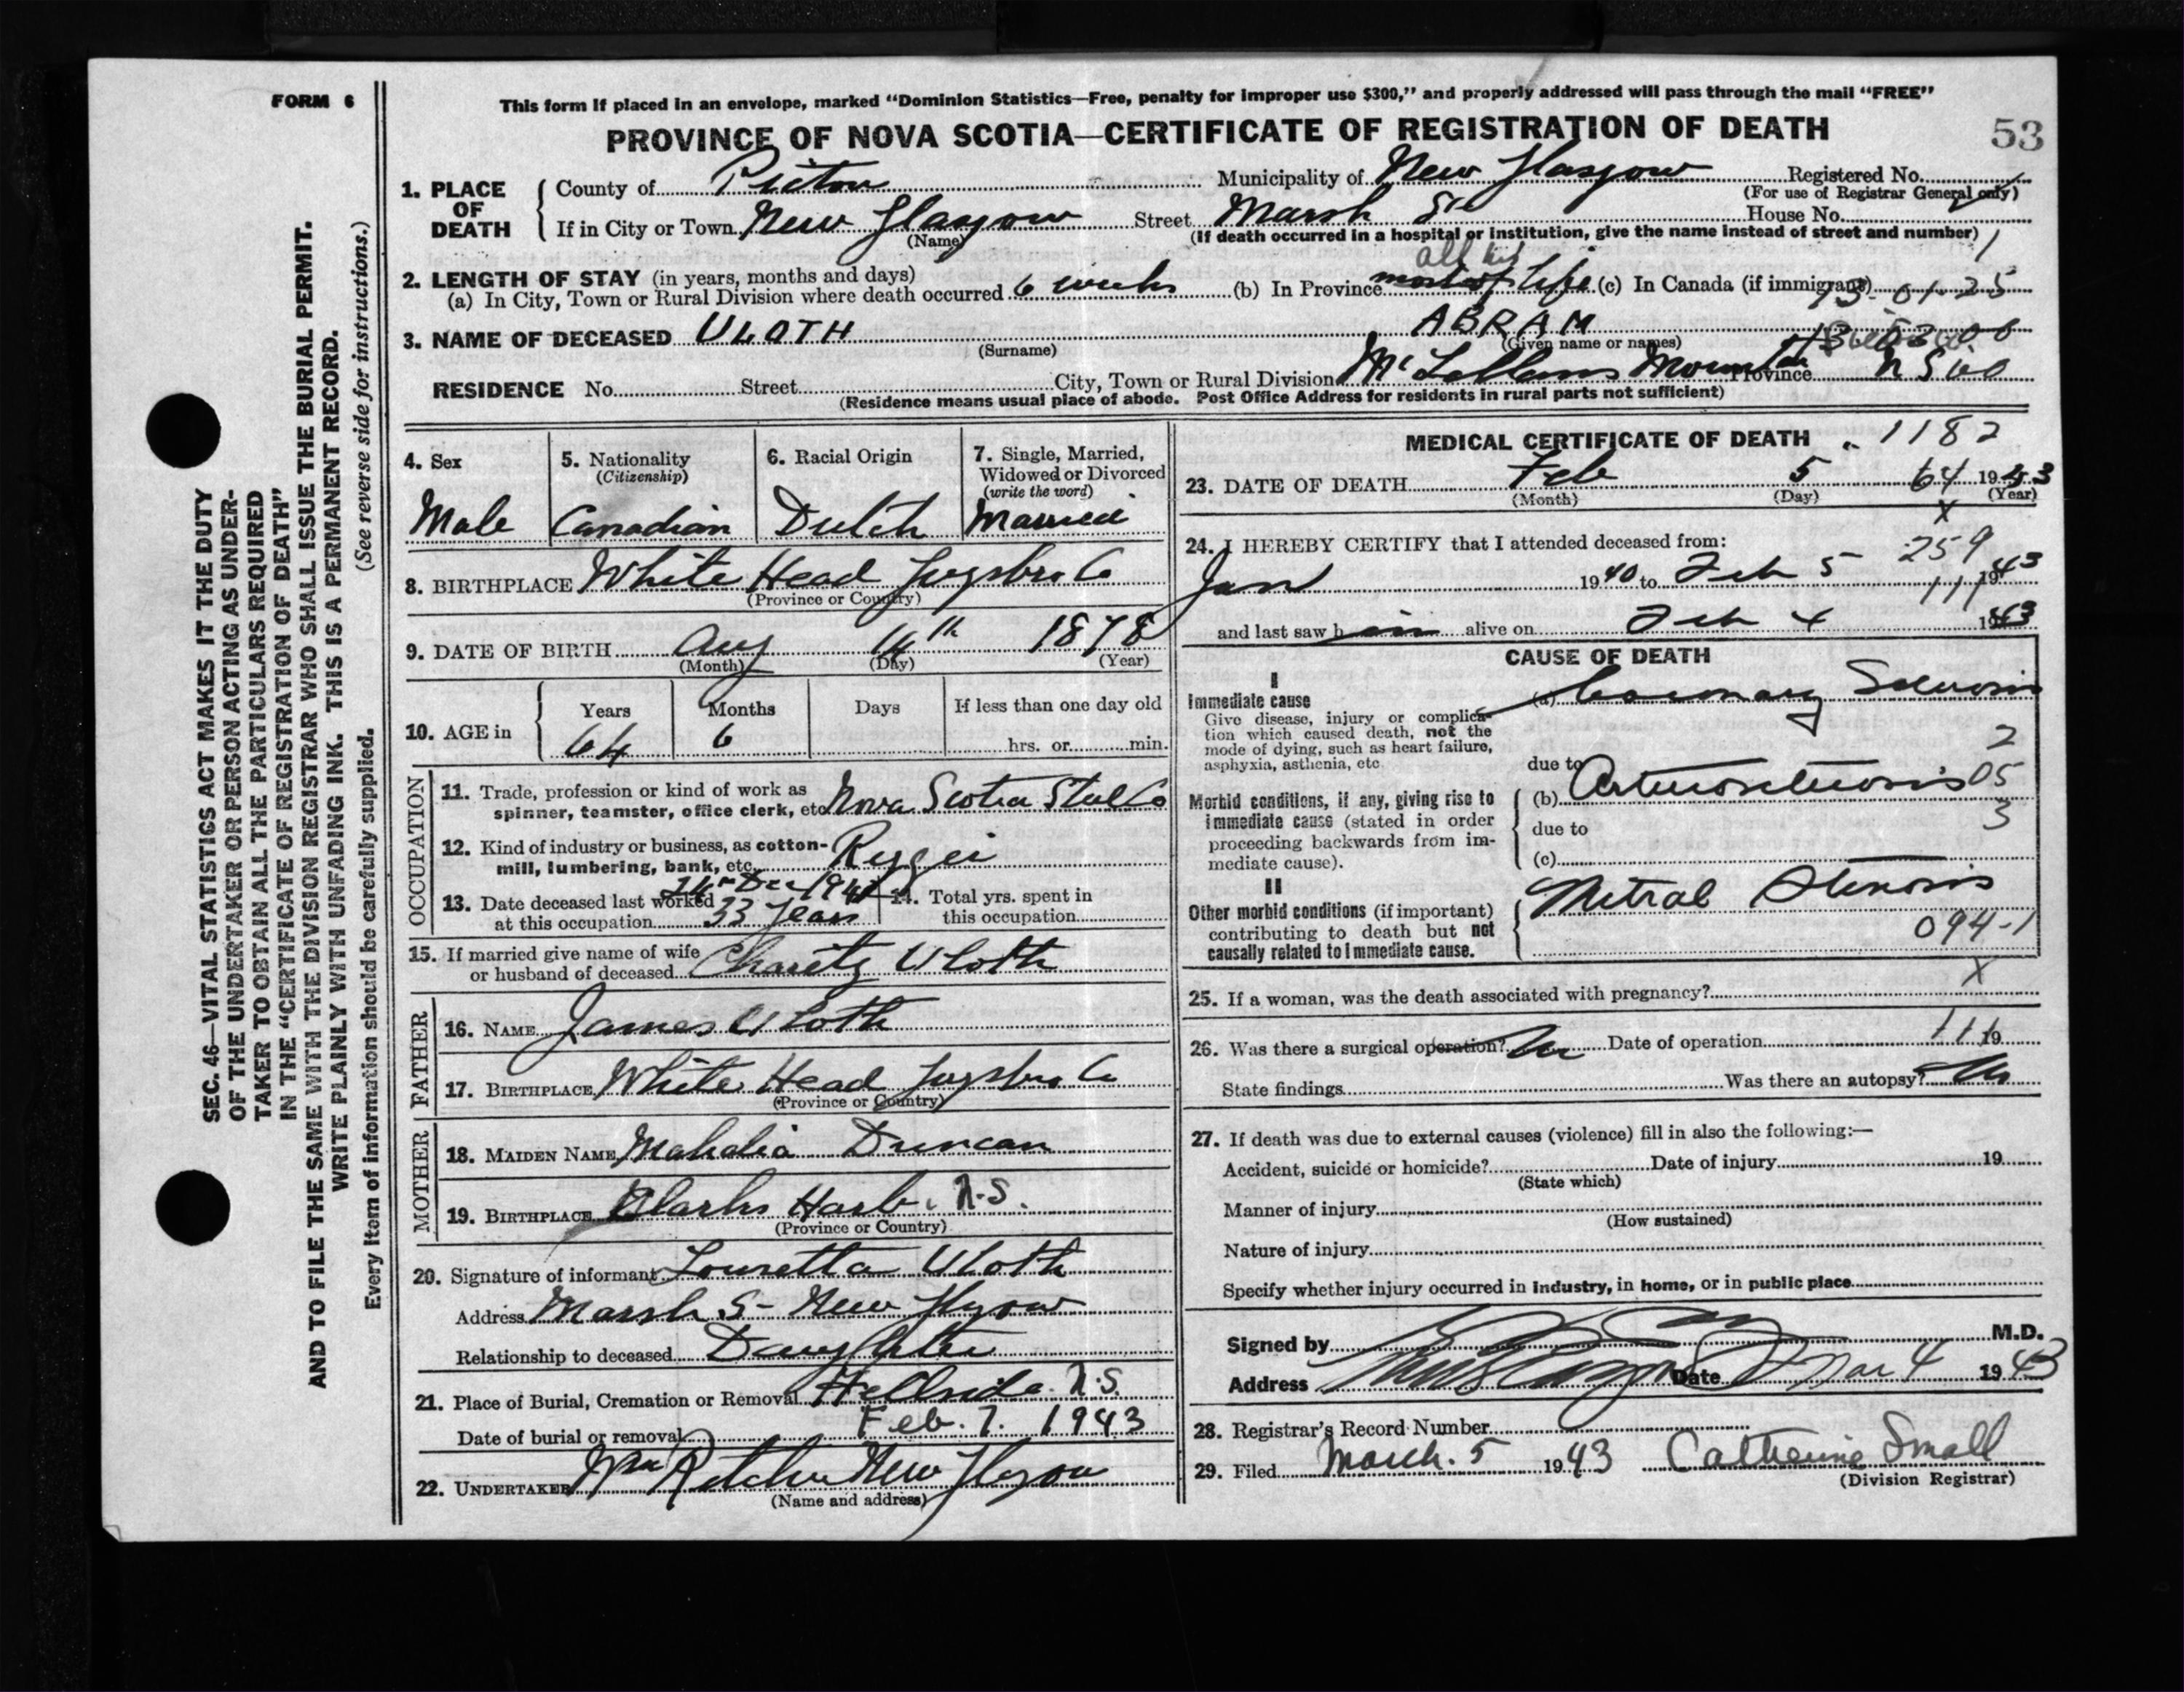 FORM 6
This form if placed in an envelope, marked "Dominion Statistics—Free, penalty for improper use $300," and properly addressed will pass through the mail "FREE"
PROVINCE OF NOVA SCOTIA—CERTIFICATE OF REGISTRATION OF DEATH
53
1. PLACE OF DEATH
County of Pictou Municipality of New Glasgow Registered No.
(For use of Registrar General only)
If in City or Town New Glasgow Street Marsh St House No.
(Name) (If death occurred in a hospital or institution, give the name instead of street and number) 1
2. LENGTH OF STAY (in years, months and days) all his
(a) In City, Town or Rural Division where death occurred 6 weeks (b) In Province most of life (c) In Canada (if immigrant) 13-01-25
3. NAME OF DECEASED ULOTH ABRAM
(Surname) (Given name or names)
RESIDENCE No. Street City, Town or Rural Division McLellans Mountain Province NS
(Residence means usual place of abode. Post Office Address for residents in rural parts not sufficient)
SEC. 46—VITAL STATISTICS ACT MAKES IT THE DUTY
OF THE UNDERTAKER OR PERSON ACTING AS UNDER-
TAKER TO OBTAIN ALL THE PARTICULARS REQUIRED
IN THE "CERTIFICATE OF REGISTRATION OF DEATH"
AND TO FILE THE SAME WITH THE DIVISION REGISTRAR WHO SHALL ISSUE THE BURIAL PERMIT.
WRITE PLAINLY WITH UNFADING INK. THIS IS A PERMANENT RECORD.
(See reverse side for instructions.)
Every item of information should be carefully supplied.
4. Sex
Male
5. Nationality
(Citizenship)
Canadian
6. Racial Origin
Dutch
7. Single, Married,
Widowed or Divorced
(write the word)
Married
8. BIRTHPLACE White Head Guysboro Co
(Province or Country)
9. DATE OF BIRTH Aug 14th 1878
(Month) (Day) (Year)
10. AGE in
Years Months Days If less than one day old
64 6 hrs. or min.
OCCUPATION
11. Trade, profession or kind of work as
spinner, teamster, office clerk, etc. Nova Scotia Steel Co
12. Kind of industry or business, as cotton-
mill, lumbering, bank, etc.
13. Date deceased last worked
at this occupation 33 Years
14. Total yrs. spent in
this occupation
15. If married give name of wife
or husband of deceased Charity Uloth
FATHER
16. NAME James Uloth
17. BIRTHPLACE White Head Guysboro Co
(Province or Country)
MOTHER
18. MAIDEN NAME Mahalia Duncan
19. BIRTHPLACE Harb. N.S.
(Province or Country)
20. Signature of informant Louretta Uloth
Address Marsh S- New Glasgow
Relationship to deceased Daughter
21. Place of Burial, Cremation or Removal Hillside N.S.
Date of burial or removal Feb. 7. 1943
22. UNDERTAKER Wm New Glasgow
(Name and address)
MEDICAL CERTIFICATE OF DEATH 1182
23. DATE OF DEATH Feb 5 64 1943
(Month) (Day) (Year)
X
24. I HEREBY CERTIFY that I attended deceased from: 259
Jan 1940 to Feb 5 111 1943
and last saw him alive on Feb 4 1943
CAUSE OF DEATH
I
Immediate cause
Give disease, injury or complica-
tion which caused death, not the
mode of dying, such as heart failure,
asphyxia, asthenia, etc
(a) Coronary Sclerosis
2
due to
Morbid conditions, if any, giving rise to
immediate cause (stated in order
proceeding backwards from im-
mediate cause).
(b) Arteriosclerosis 05
due to 3
(c)
II
Other morbid conditions (if important)
contributing to death but not
causally related to immediate cause.
Mitral Stenosis
094-1
X
25. If a woman, was the death associated with pregnancy?
26. Was there a surgical operation? No Date of operation 111 19
State findings Was there an autopsy? No
27. If death was due to external causes (violence) fill in also the following:—
Accident, suicide or homicide? Date of injury 19
(State which)
Manner of injury
(How sustained)
Nature of injury
Specify whether injury occurred in industry, in home, or in public place
Signed by M.D.
Address Date Mar 4 1943
28. Registrar's Record Number
29. Filed March. 5 1943 Catherine Small
(Division Registrar)